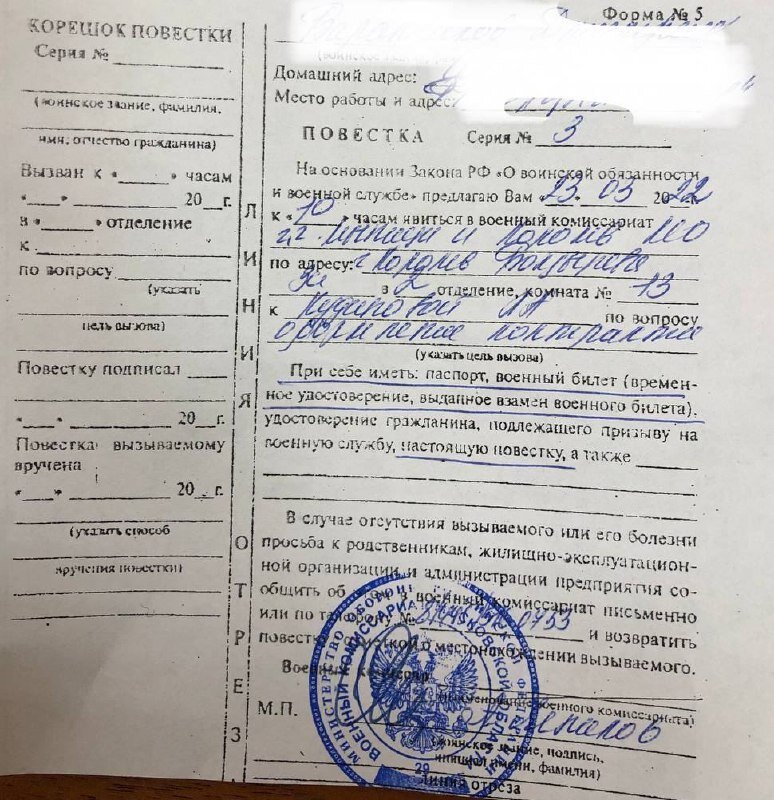 КОРЕШОК ПОВЕСТКИ
Серия №
(воинское звание, фамилия,
имя, отчество гражданина)
Вызван к « » часам
« » 20 г.
в « » отделение
к
по вопросу
(указать
цель вызова)
Повестку подписал
« » 20 г.
Повестка вызываемому
вручена
« » 20 г.
(указать способ
вручения повестки)
ЛИНИЯ ОТРЕЗ
Форма № 5
Домашний адрес:
Место работы и адрес
ПОВЕСТКА Серия № 3
На основании Закона РФ «О воинской обязанности
и военной службе» предлагаю Вам «23» 03 2022 г.
к «10» часам явиться в военный комиссариат
и Королев МО
по адресу: г Королев Болдырева
в 2 отделение, комната № 13
к по вопросу
оформления контракта
(указать цель вызова)
При себе иметь: паспорт, военный билет (времен-
ное удостоверение, выданное взамен военного билета),
удостоверение гражданина, подлежащего призыву на
военную службу, настоящую повестку, а также
В случае отсутствия вызываемого или его болезни
просьба к родственникам, жилищно-эксплуатацион-
ной организации и администрации предприятия со-
общить об в военный комиссариат письменно
или по телефону № и возвратить
повестку с отметкой о местонахождении вызываемого.
Военный комиссар
(наименование военного комиссариата)
М.П.
(воинское звание, подпись,
инициал имени, фамилия)
МИНИСТЕРСТВО ОБОРОНЫ
ВОЕННЫЙ КОМИССАРИАТ МОСКОВСКОЙ ОБЛАСТИ
Линия отреза